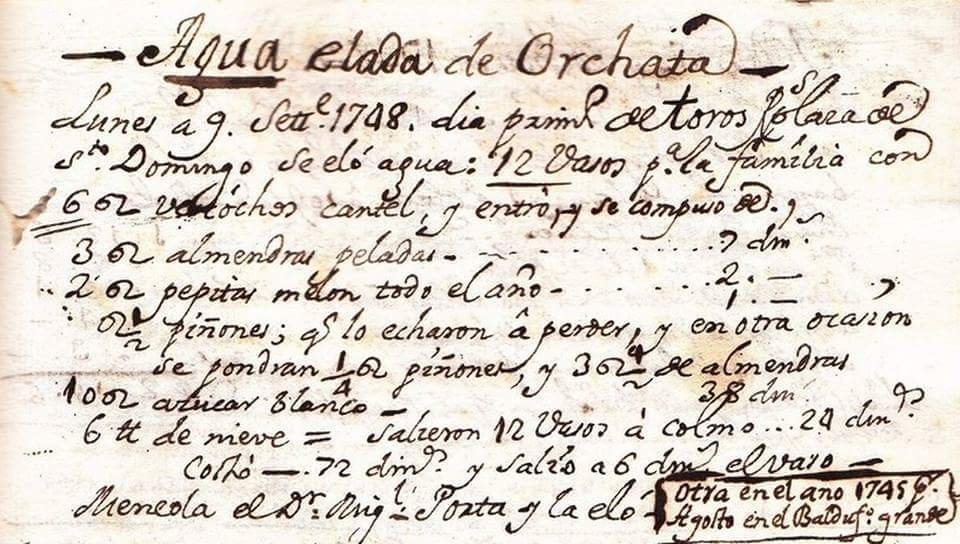 — Agua elada de Orchata —
Lunes a 9. Settᵉ. 1748. dia primʳ. de toros Plaza de
Sᵗᵒ. Domingo se eló agua: 12 Vasos pᵃ. la família con
6 62 vescóchos cantel, y entró, y se compuso de.,
3 62 almendras peladas - . . . . . . . . . 7 dinˢ.
2 62 pepitas melon todo el año - . . . . . . . 2. —
62 ½ piñones; qᵉ lo echaron â perder, y en otra ocasion 1. —
se pondran ¼ 62 piñones, y 3 62 ½ de almendras
10 62 azucar blanco — 38 dinˢ
6 tt de nieve = Salieron 12 Vasos à colmo ... 24 dinˢ
Costó —. 72 dinˢ. y salió a 6 dinˢ el vaso —
Meneola el Dʳ. Migˡ. Porta y la eló -
Otra en el ano 1745 pʳ.
Agosto en el Baldufº. grande